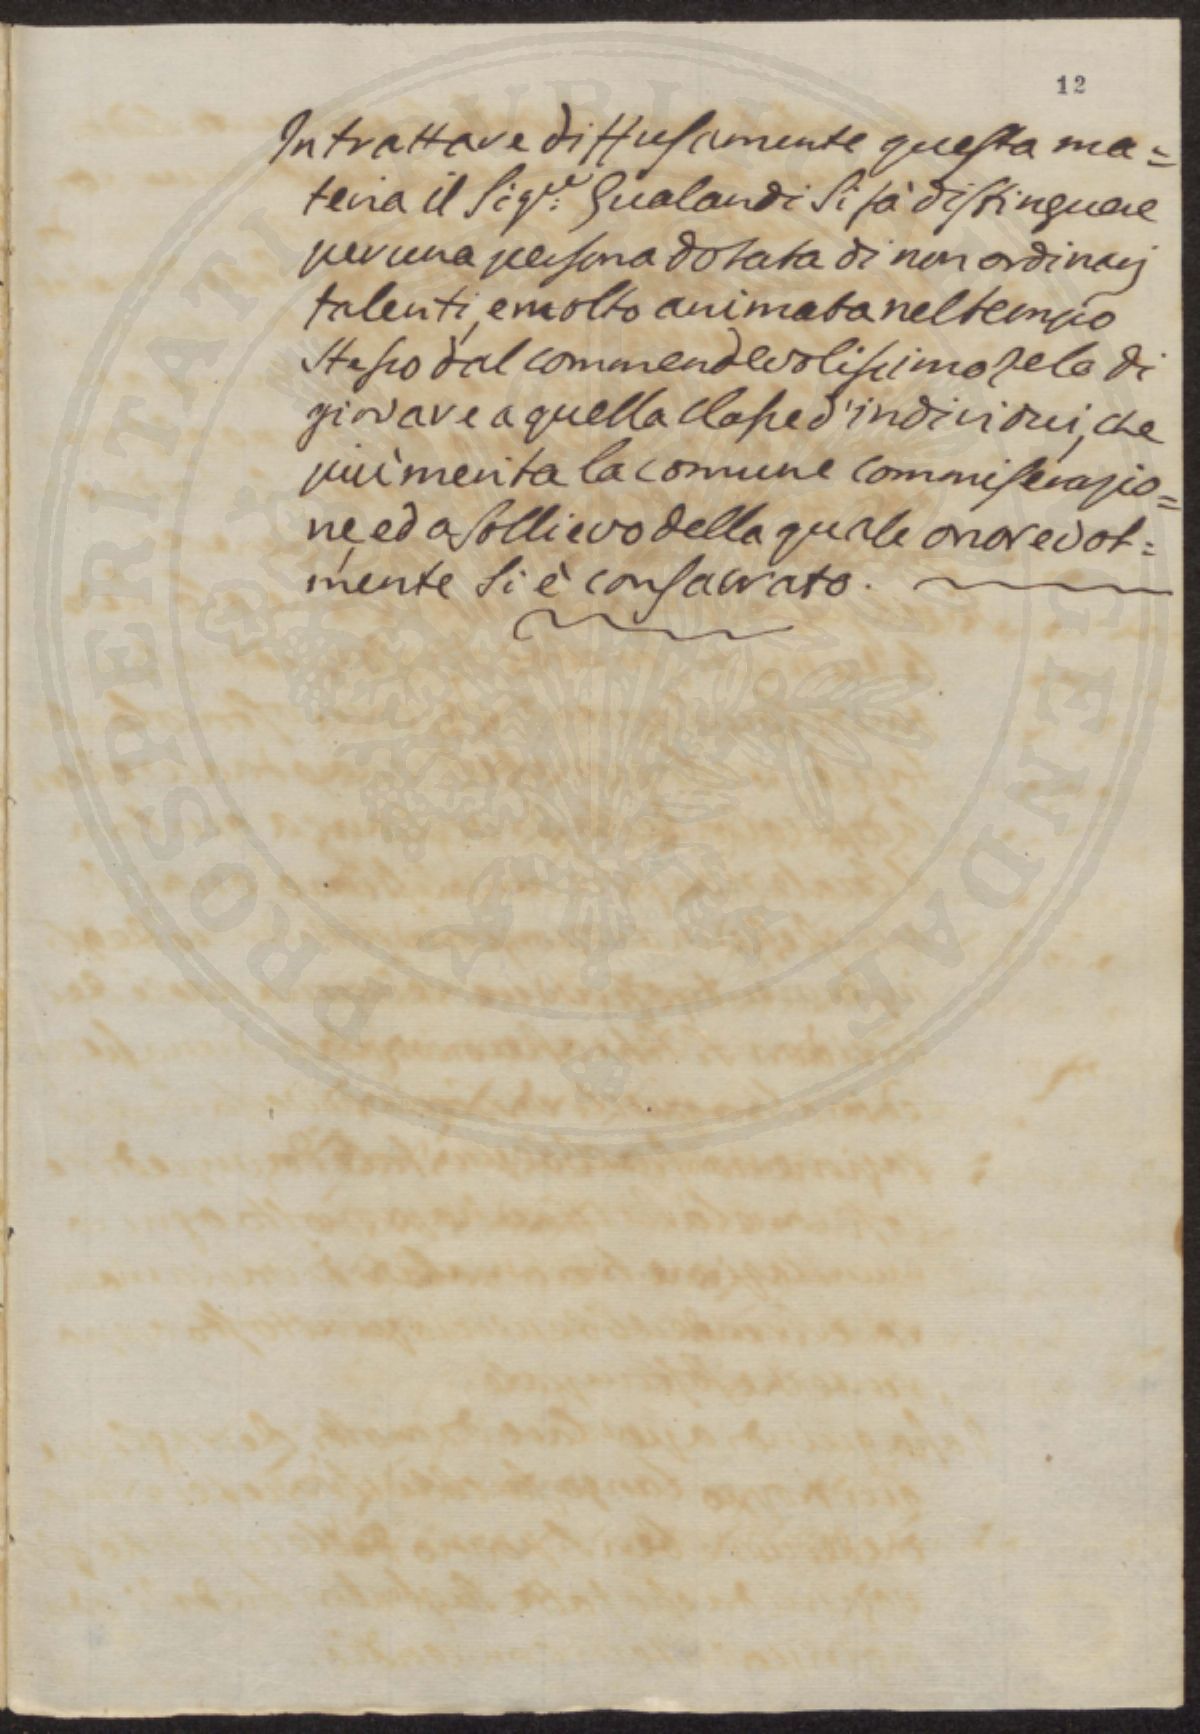 12
In trattare diffusamente questa ma=
teria il Sig.re Gualandi si fà distinguere
per una persona dotata di non ordinarj
talenti, e molto animata nel tempo
stesso dal commendevolissimo zelo di
giovare a quella classe d'individui, che
più merita la comune commiserazio=
ne, ed a sollievo della quale onorevol=
mente si è consacrato.
PROSPERITATI PUBLICAE AUGENDAE